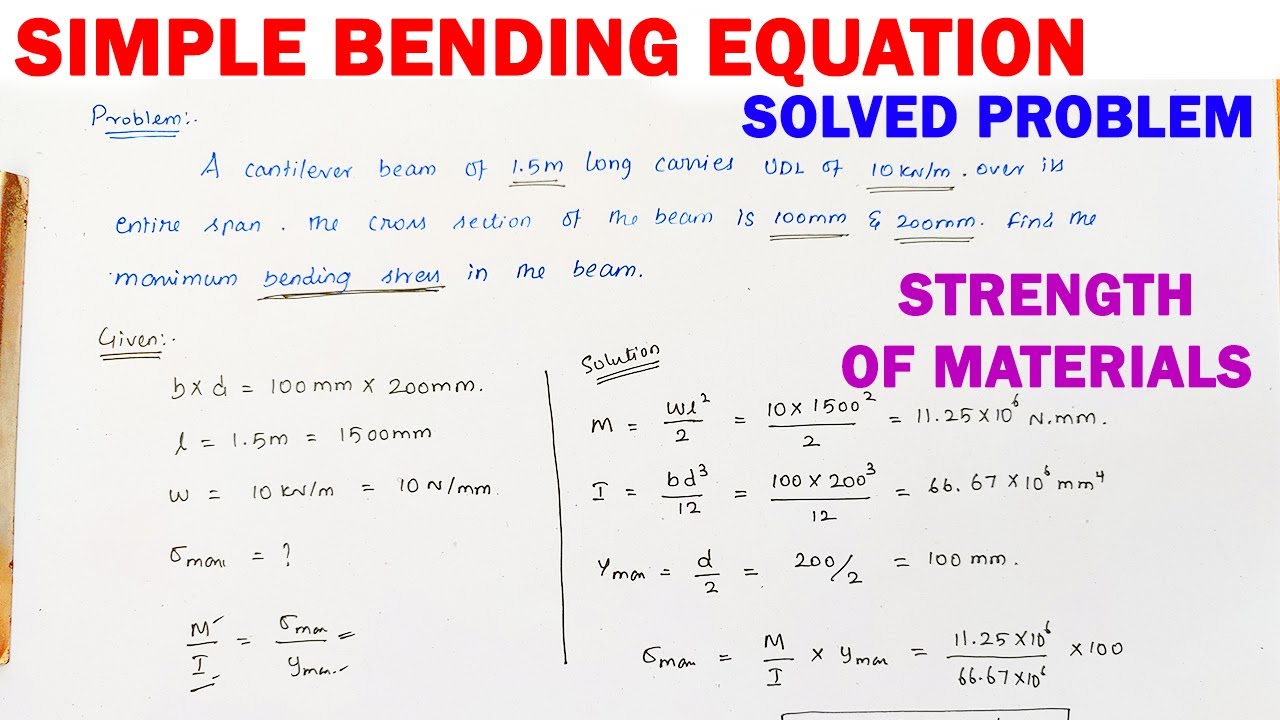 SIMPLE BENDING EQUATION
SOLVED PROBLEM
Problem:-
A cantilever beam of 1.5m long carries UDL of 10 kN/m. over its
entire span. The cross section of the beam is 100mm & 200mm. find the
maximum bending stress in the beam.
STRENGTH
OF MATERIALS
Given:-
b x d = 100 mm x 200mm.
l = 1.5m = 1500mm
w = 10 kN/m = 10 N/mm.
σmax = ?
M/I = σmax/ymax
Solution
M = wl²/2 = 10 x 1500²/2 = 11.25 x 10⁶ N.mm.
I = bd³/12 = 100 x 200³/12 = 66.67 x 10⁶ mm⁴
ymax = d/2 = 200/2 = 100 mm.
σmax = M/I x ymax = 11.25 x 10⁶/66.67 x 10⁶ x 100